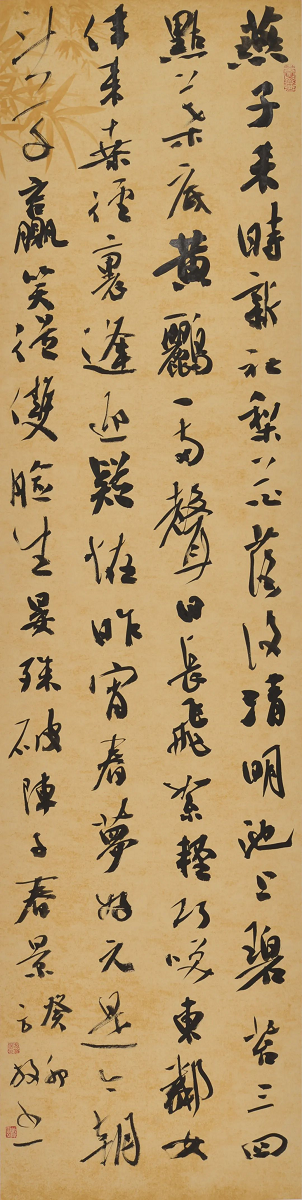 燕子来時新社梨花落後清明池上碧苔三四
點葉底黄鸝一兩聲日長飛絮輕巧咲東鄰女
伴来桑徑裏逢迎疑怪昨宵春夢好元是今朝
鬥草贏笑從雙臉生晏殊破陣子春景
癸卯